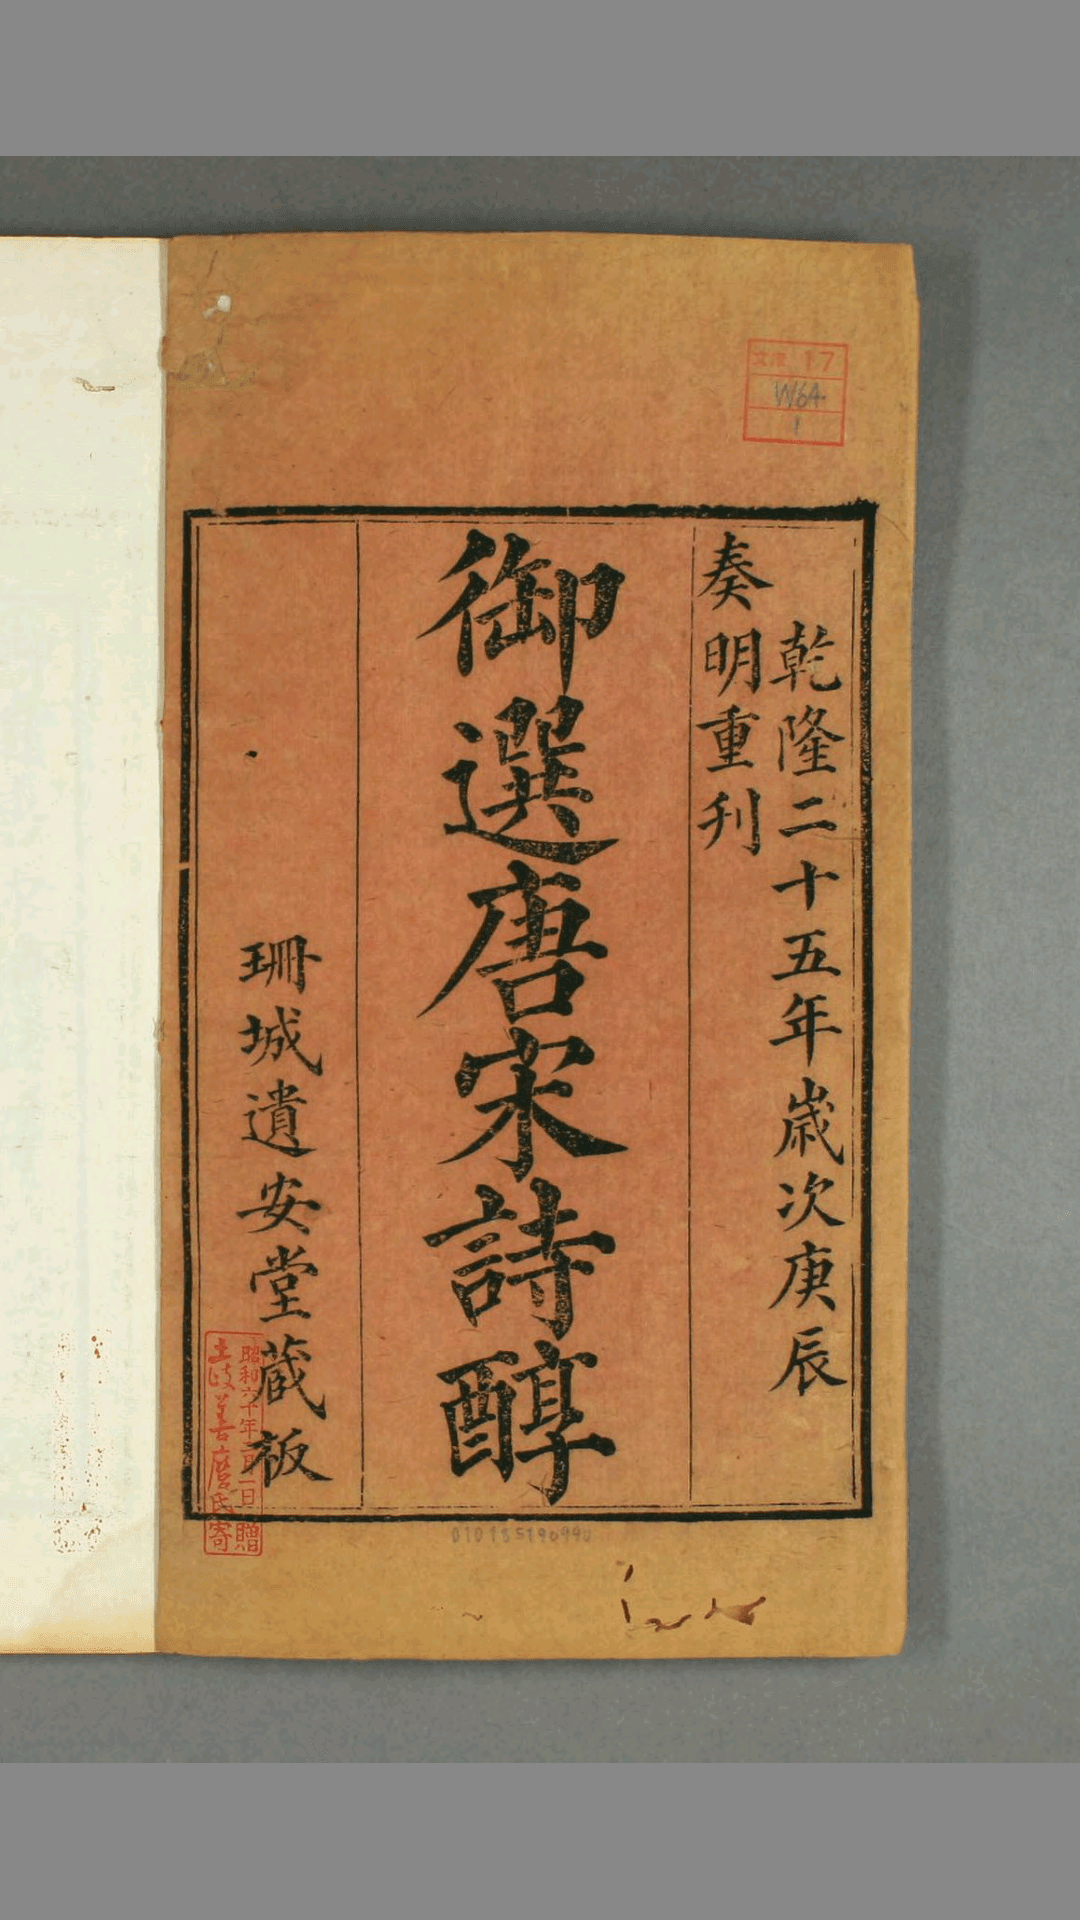 乾隆二十五年歲次庚辰
奏明重刊
御選唐宋詩醇
珊城遺安堂藏板
昭和六十年二月一日
土岐善麿氏寄贈
17
W64
1